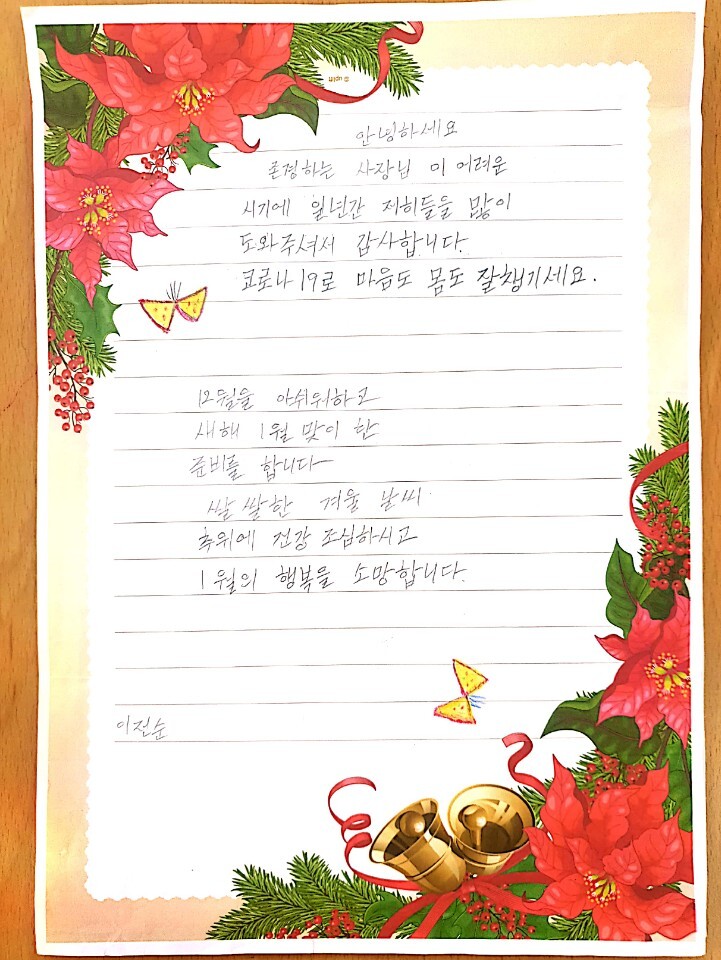 안녕하세요
존경하는 사장님 이 어려운
시기에 일년간 저희들을 많이
도와주셔서 감사합니다.
코로나 19로 마음도 몸도 잘챙기세요.
12월을 아쉬워하고
새해 1월 맞이 한
준비를 합니다
쌀쌀한 겨울 날씨
추위에 건강 조심하시고
1월의 행복을 소망합니다.
이전순